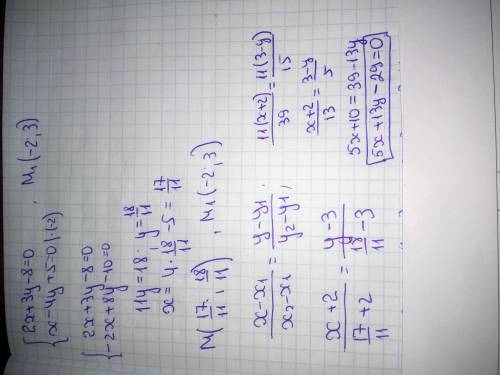 {2x+3y-8=0
{x-4y+5=0 |·(-2) , M₁(-2; 3)
{2x+3y-8=0
{-2x+8y-10=0
11y=18; y=18/11
x=4·18/11-5=17/11
M(17/11; 18/11), M₁(-2; 3)
(x-x₁)/(x₂-x₁)=(y-y₁)/(y₂-y₁);
(x+2)/(17/11+2)=(y-3)/(18/11-3)
11(x+2)/39=11(3-y)/15
(x+2)/13=(3-y)/5
5x+10=39-13y
5x+13y-29=0